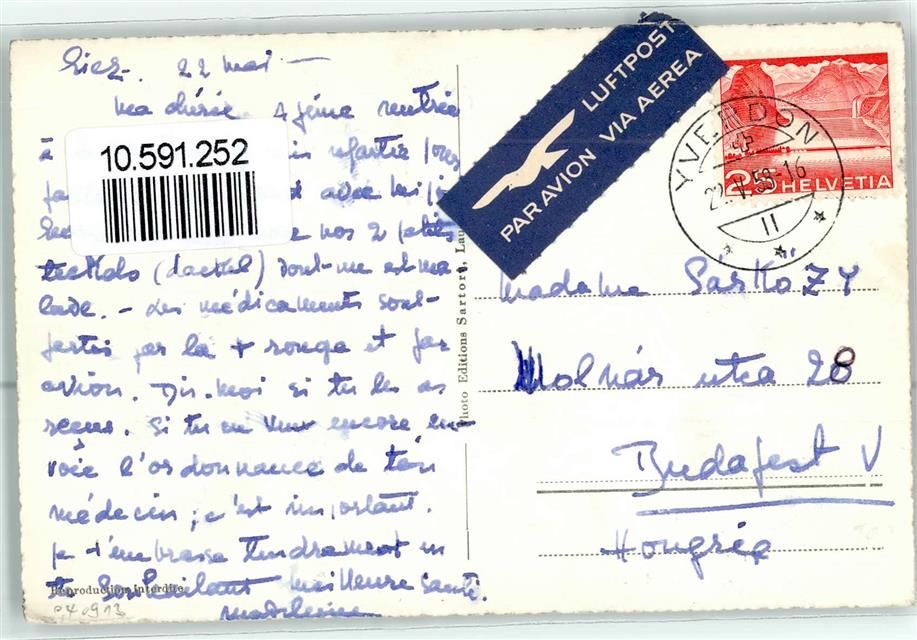 22 mai —
Ma chérie. rentrée
à
10.591.252
avec
nos 2 petits
teckels (dackel) dont une est ma
lade. — Les médicaments sont
partis par la + rouge et par
avion. Dis-moi si tu les as
reçus. Si tu en veux encore en-
voie l'ordonnance de ton
médecin, c'est important.
Je t'embrasse tendrement en
te souhaitant meilleure santé.
Madeleine
Reproduction interdite
Photo Editions Sartori, Lau
LUFTPOST
PAR AVION VIA AEREA
YVERDON
22.V.58-16
II
25 HELVETIA
Madame SÁRKÖZY
Molnár utca 28
Budapest V
Hongrie